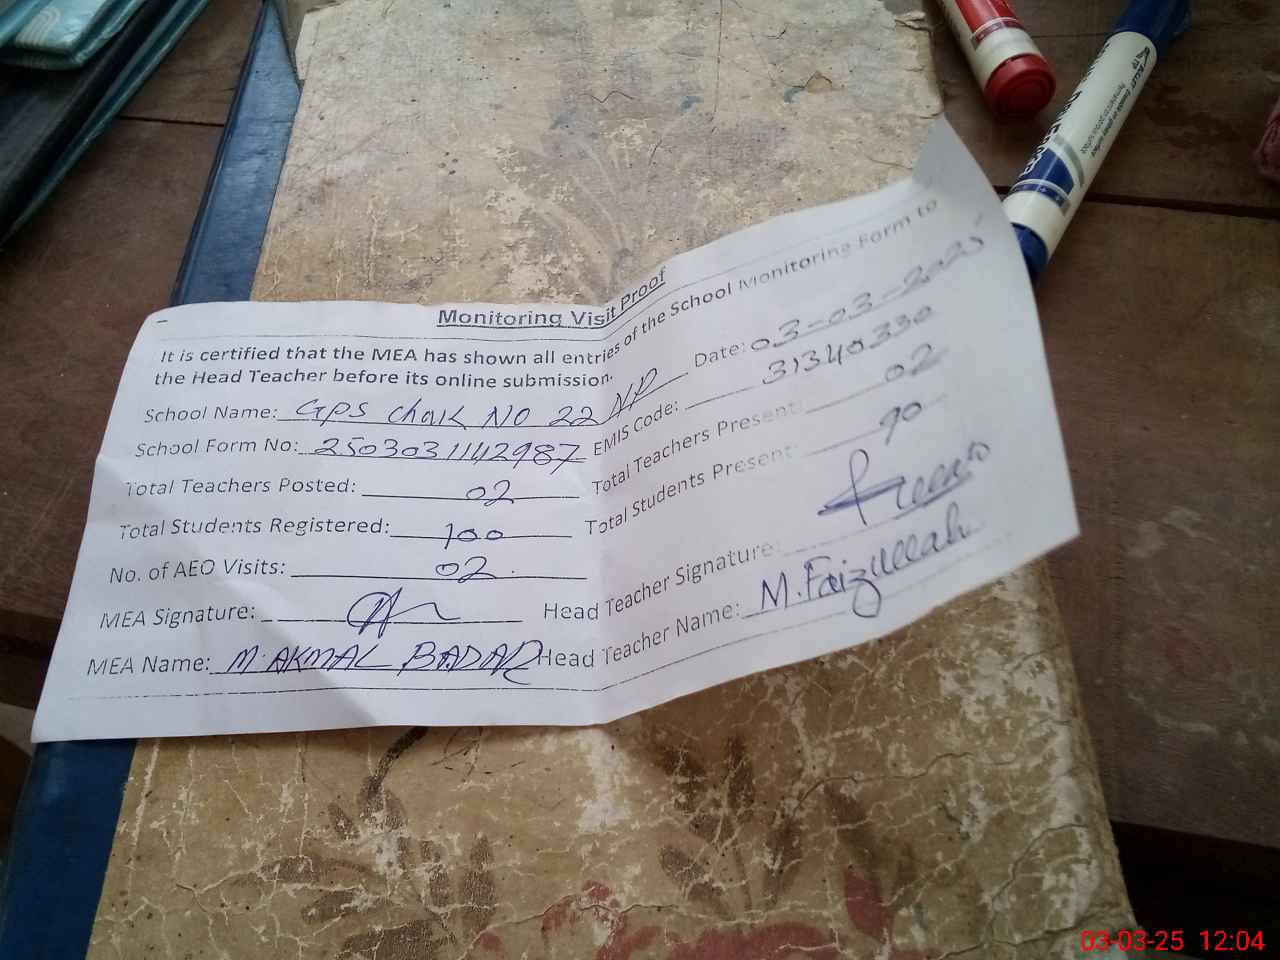 Monitoring Visit Proof
It is certified that the MEA has shown all entries of the School Monitoring Form to
the Head Teacher before its online submission.
Date: 03-03-2025
School Name: GPS Chak NO 22 NP
EMIS Code: 31340330
School Form No: 2503031142987
Total Teachers Present: 02
Total Teachers Posted: 02
Total Students Present: 90
Total Students Registered: 100
No. of AEO Visits: 02
Head Teacher Signature:
MEA Signature:
Head Teacher Name: M. Faizullah
MEA Name: M. AKMAL BADAR
03-03-25 12:04